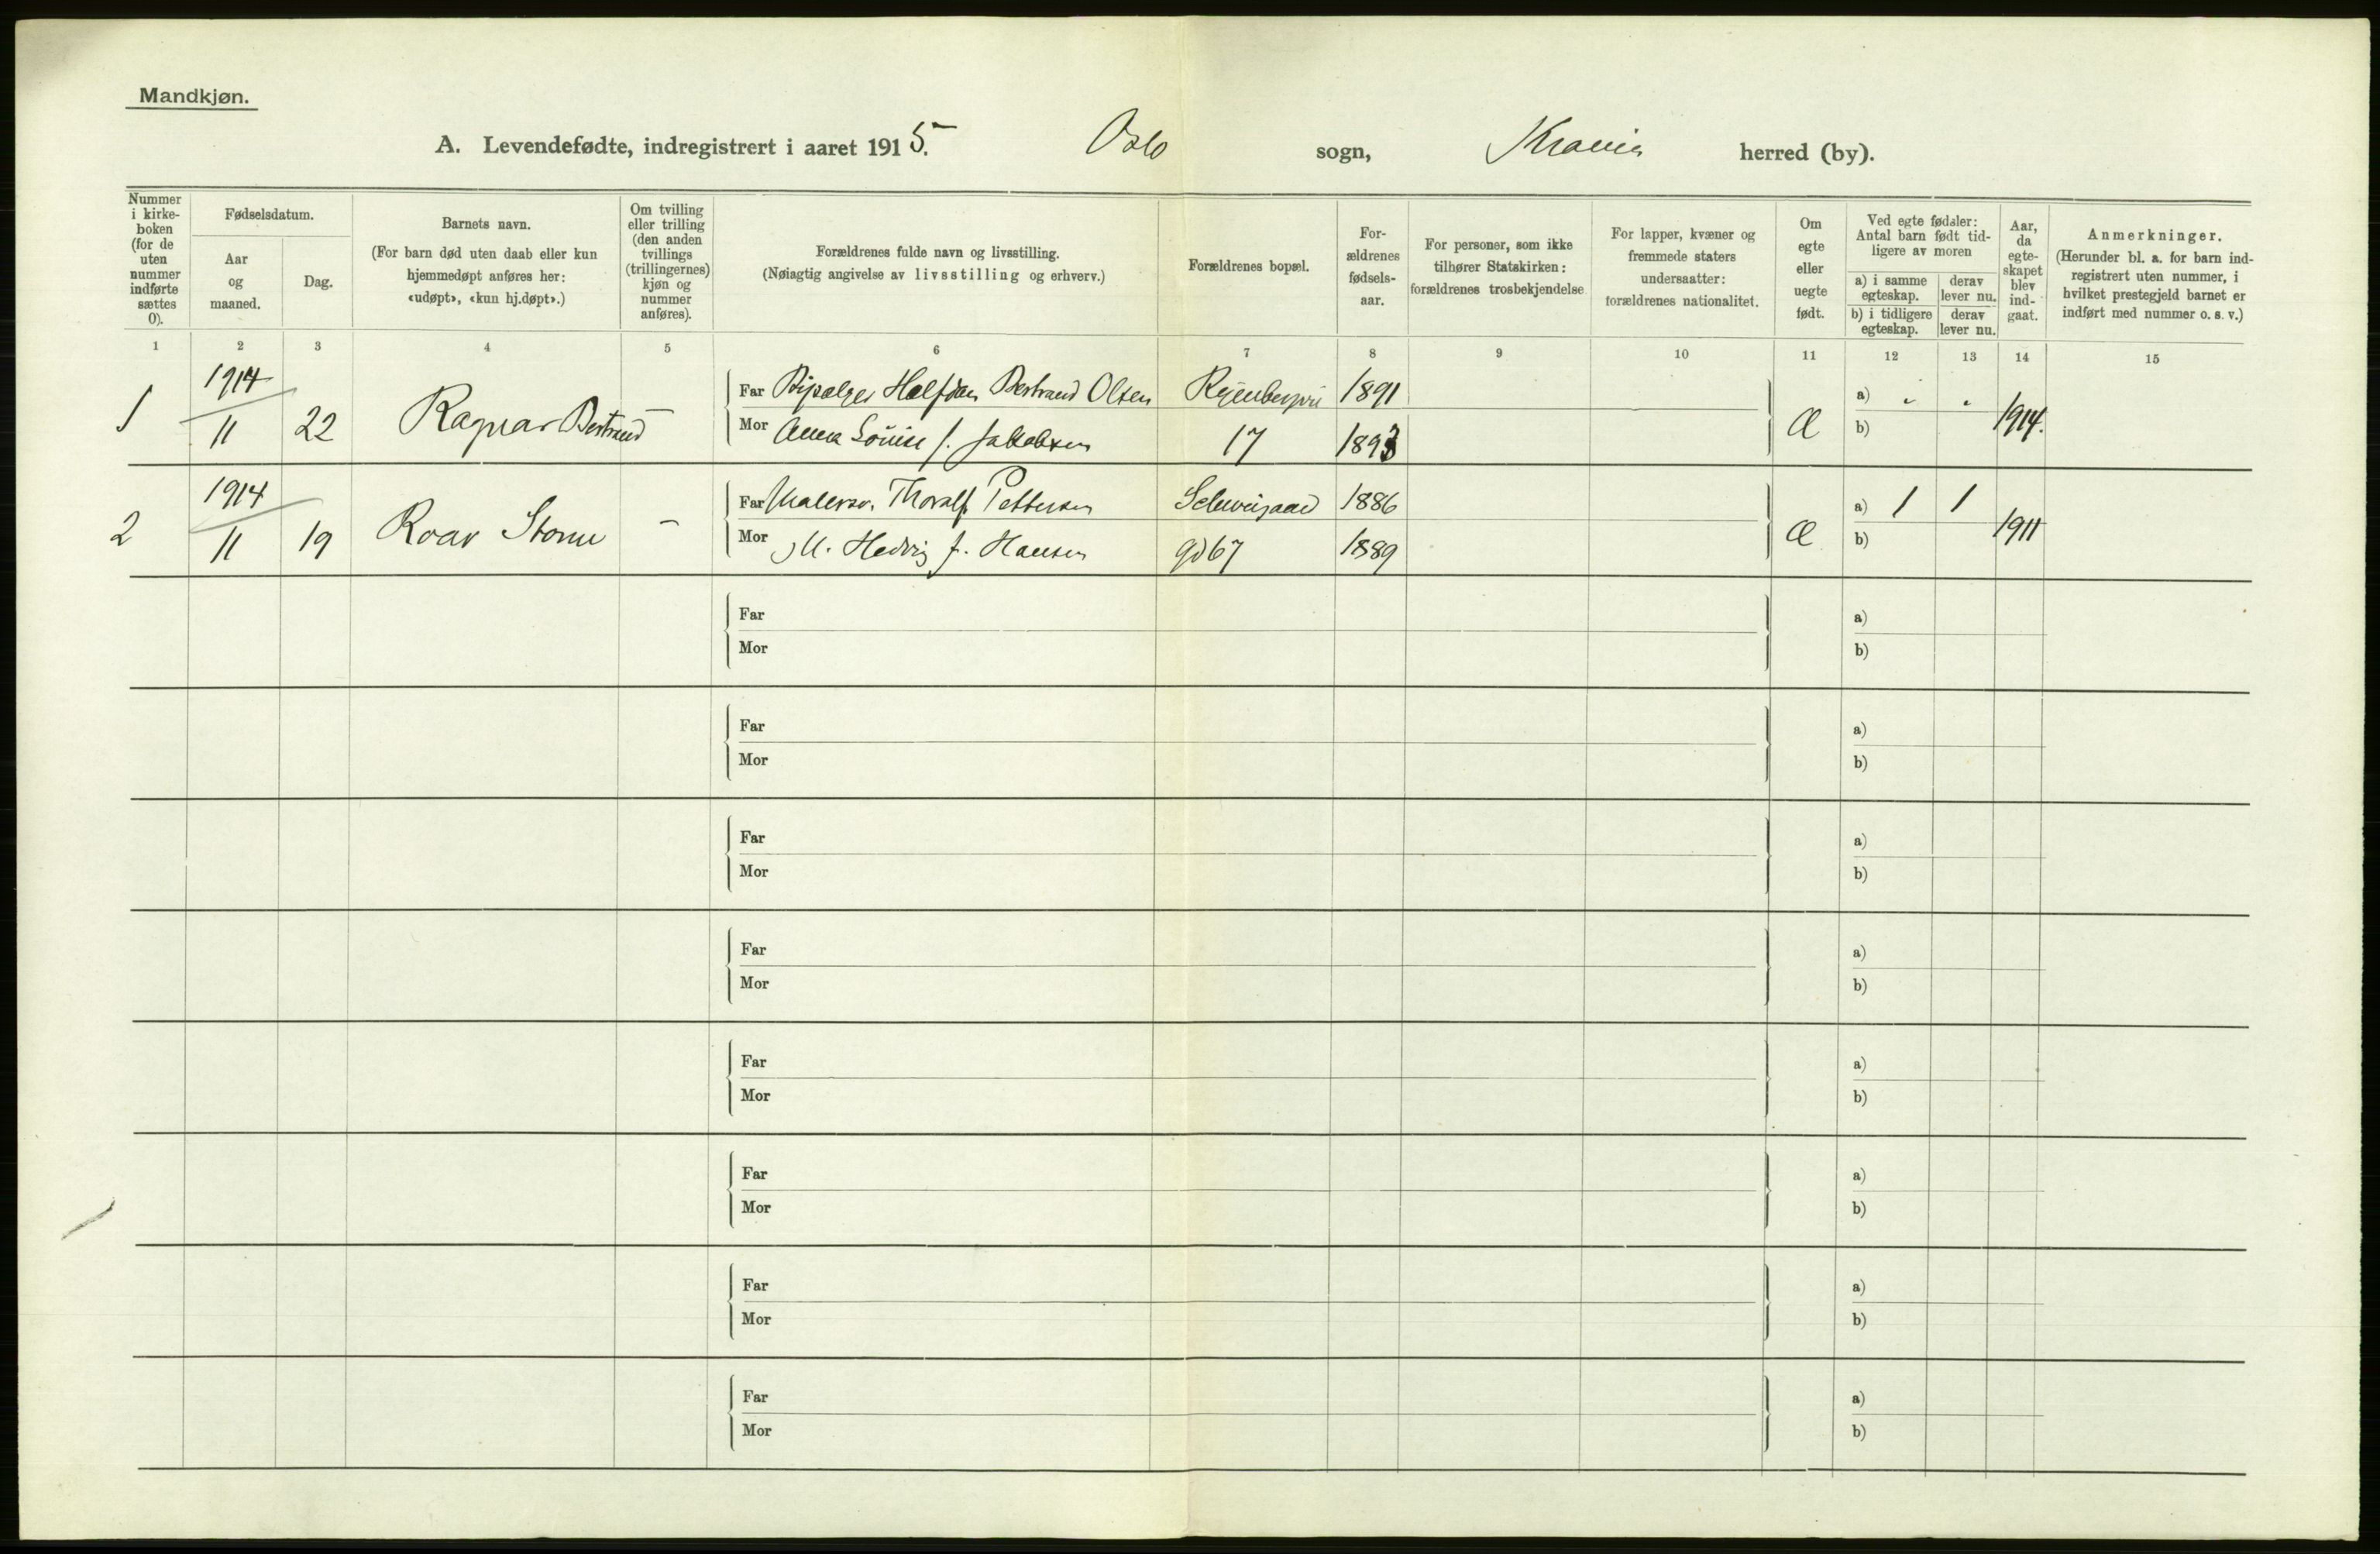 Mandkjøn.
A. Levendefødte, indregistrert i aaret 1915. Oslo sogn, Krania herred (by).
Nummer i kirke- boken (for de uten nummer indførte sættes 0).
Fødselsdatum.
Aar og maaned.
Dag.
Barnets navn.
(For barn død uten daab eller kun
hjemmedøpt anføres her:
«udøpt», «kun hj.døpt».)
Om tvilling
eller trilling
(den anden
tvillings
(trillingernes)
kjøn og
nummer
anføres).
Forældrenes fulde navn og livsstilling.
(Nøiagtig angivelse av livsstilling og erhverv.)
Forældrenes bopæl.
For-
ældrenes
fødsels-
aar.
For personer, som ikke
tilhører Statskirken:
forældrenes trosbekjendelse
For lapper, kvæner og
fremmede staters
undersaatter:
forældrenes nationalitet.
Om
egte
eller
uegte
født.
Ved egte fødsler:
Antal barn født tid-
ligere av moren
a) i samme egteskap.
derav lever nu.
b) i tidligere egteskap.
derav lever nu.
Aar,
da
egte-
skapet
blev
ind-
gaat.
Anmerkninger.
(Herunder bl. a. for barn ind-
registrert uten nummer, i
hvilket prestegjeld barnet er
indført med nummer o. s. v.)
1 2 3 4 5 6 7 8 9 10 11 12 13 14 15
1 1914 11 22 Ragnar Bertrand —
Far Halfdan Bertrand Olsen 1891
Mor Anna Louise f. Jakobsen 17 1893
Æ a) b) 1914.
2 1914 11 19 Roar Storm —
Far Malersv. Thoralf Pettersen Schweigaard 1886
Mor M. Hedvig f. Hansen gd 67 1889
Æ a) 1 1 b) 1911
Far a)
Mor b)
Far a)
Mor b)
Far a)
Mor b)
Far a)
Mor b)
Far a)
Mor b)
Far a)
Mor b)
Far a)
Mor b)
Far a)
Mor b)